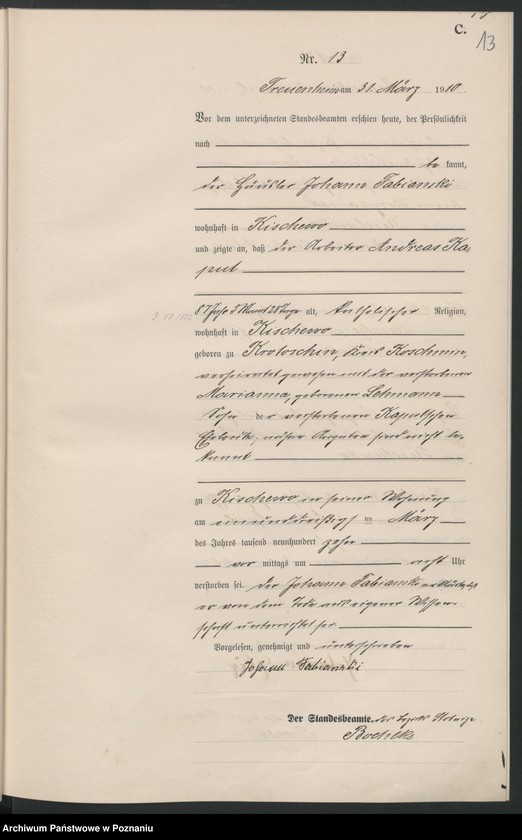 C.
13
Nr. 13
Treuenheim am 31. März 1910.
Vor dem unterzeichneten Standesbeamten erschien heute, der Persönlichkeit
nach
be kannt,
der Häusler Johann Fabianski
wohnhaft in Kischewo
und zeigte an, daß der Arbeiter Andreas Ka-
put
87 Jahr 5 Monat 28 Tage alt, katholischer Religion,
wohnhaft in Kischewo
geboren zu Krotoschin, Kreis Koschmin,
verheiratet gewesen mit der verstorbenen
Marianna, geborenen Lehmann
Sohn der verstorbenen Kaputschen
Eheleute, nähere Angaben sind nicht be-
kannt
zu Kischewo in seiner Wohnung
am einunddreißigsten März
des Jahres tausend neunhundert zehn
vor mittags um acht Uhr
verstorben sei. Der Johann Fabianski erklärte, daß
er von dem Tode aus eigener Wissen-
schaft unterrichtet sei
Vorgelesen, genehmigt und unterschrieben
Johann Fabianski
Der Standesbeamte.
Archiwum Państwowe w Poznaniu